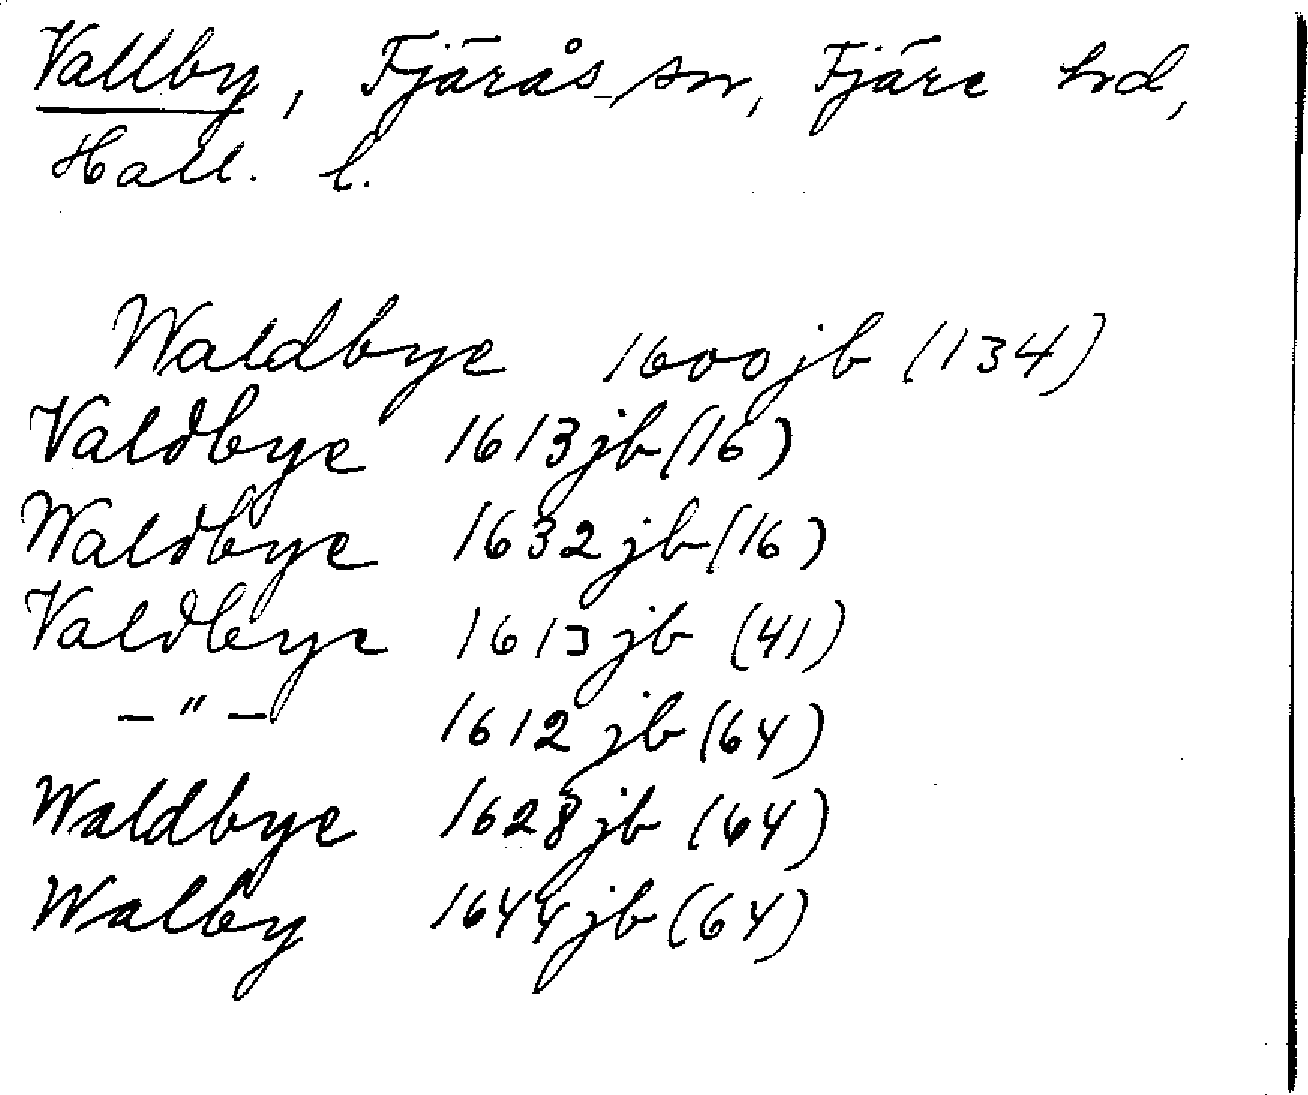 Vallby, Fjärås sn, Fjäre hd,
Hall. l.
Waldbye 1600 jb (134)
Valdbye 1613 jb (16)
Waldbye 1632 jb (16)
Valdbye 1613 jb (41)
–"– 1612 jb (64)
Waldbye 1628 jb (64)
Walby 1644 jb (64)